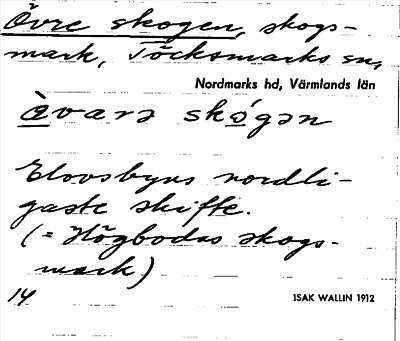 Övre skogen, skogs-
mark, Töcksmarks sn,
Nordmarks hd, Värmlands län
òvarə skógən
Elovsbyns nordli-
gaste skifte.
(= Högbodas skogs-
mark)
14
ISAK WALLIN 1912